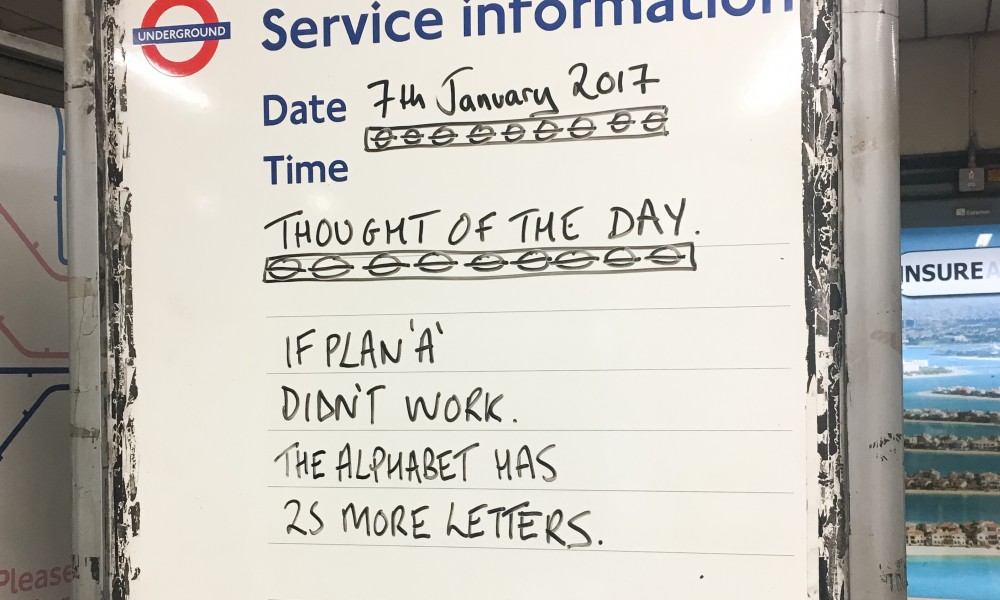 UNDERGROUND
Service information
Date 7th January 2017
Time
THOUGHT OF THE DAY.
IF PLAN 'A'
DIDN'T WORK.
THE ALPHABET HAS
25 MORE LETTERS.
Please
INSURE